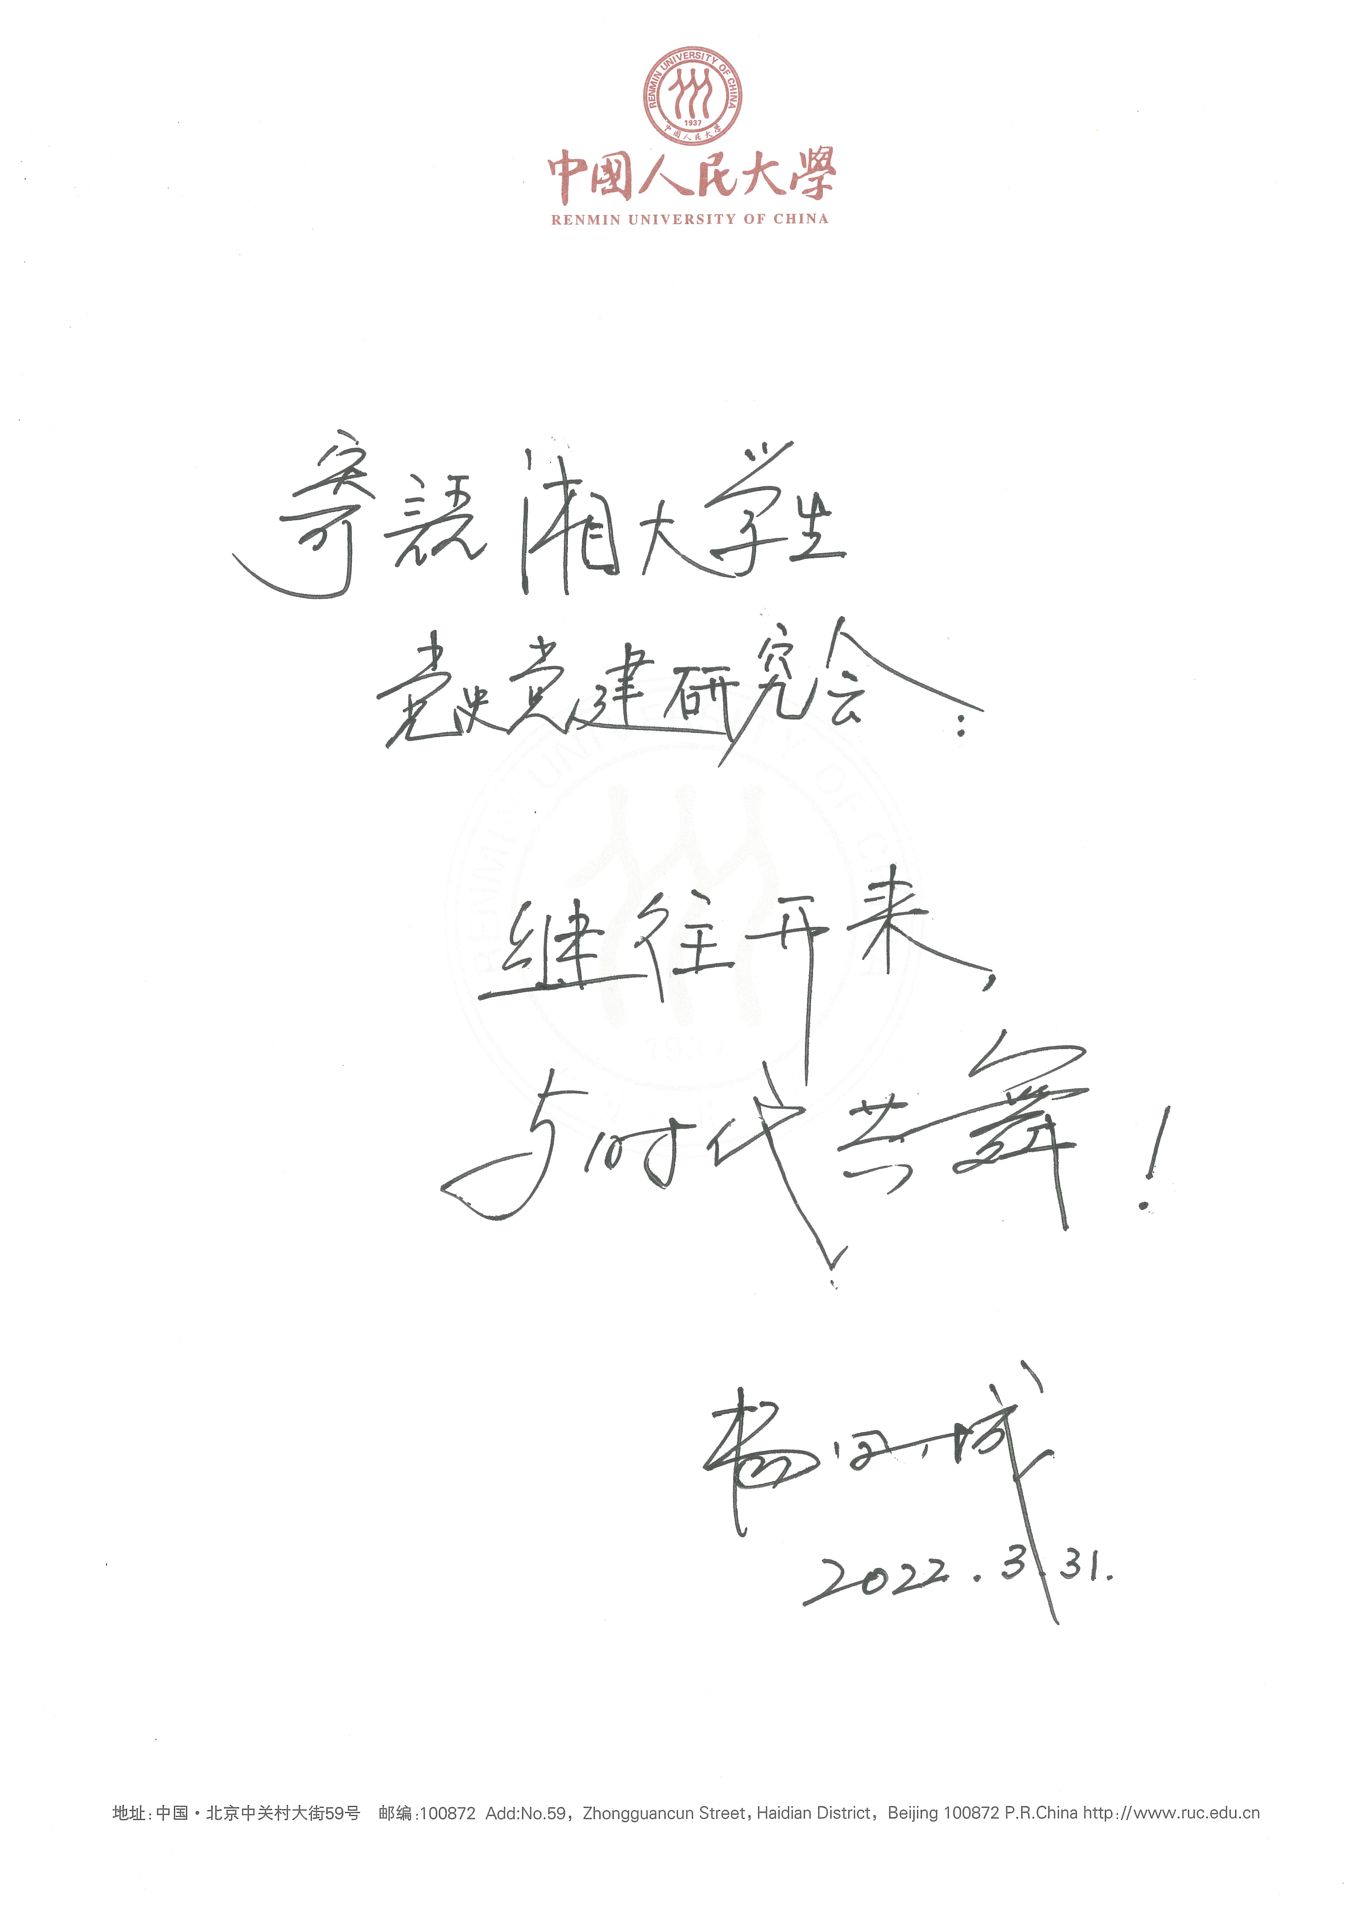 RENMIN UNIVERSITY OF CHINA
1937
中國人民大學
中國人民大學
RENMIN UNIVERSITY OF CHINA
寄語湘大学生
党史党建研究会:
继往开来,
与时代共舞!
杨
2022.3.31.
地址:中国·北京中关村大街59号 邮编:100872 Add:No.59, Zhongguancun Street, Haidian District, Beijing 100872 P.R.China http://www.ruc.edu.cn
RENMIN UNIVERSITY OF CHINA
1937